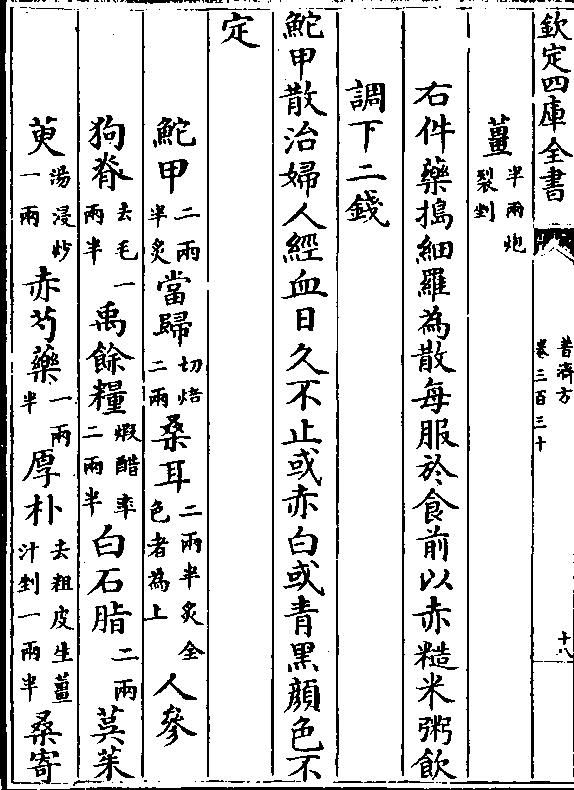 欽定四庫全書
普濟方
卷三百三十
十八
薑半兩炮裂剉
右件藥搗細羅為散每服於食前以赤糙米粥飲
調下二錢
鮀甲散治婦人經血日久不止或赤白或青黑顔色不
定
鮀甲二兩半炙當歸切焙二兩桑耳二兩半炙全色者為上人參
狗脊去毛一兩半禹餘糧煆醋率二兩半白石脂二兩茱萸
萸湯浸炒一兩赤芍藥一兩半厚朴去粗皮生薑汁剉一兩半桑寄